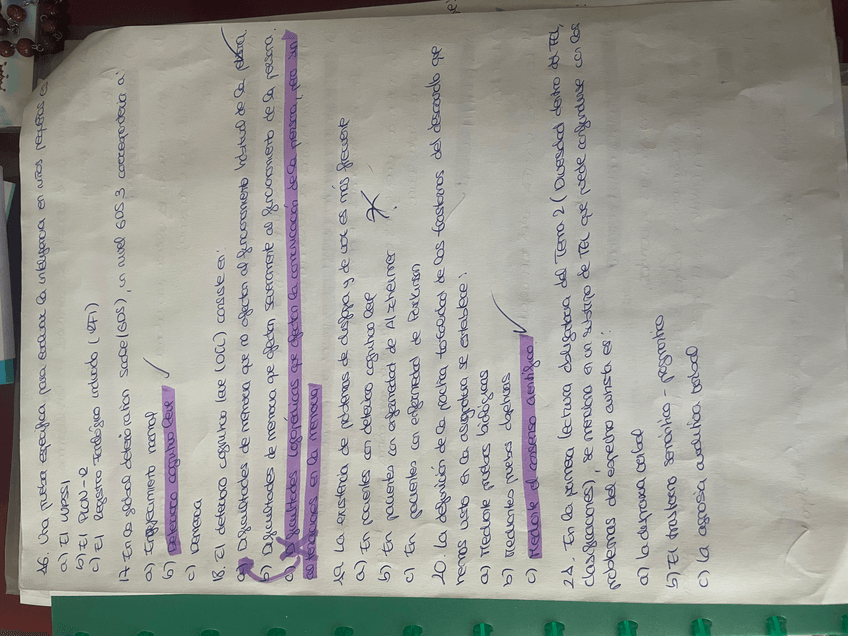 16. Una prueba específica para evaluar la inteligencia en niños pequeños es
a) El WPPSI
b) El PLON-R
c) El Registro Fonológico inducido (RFI)
17. En la global deterioration scale (GDS), un nivel GDS 3 correspondería a:
a) Envejecimiento normal
b) Deterioro cognitivo leve
c) Demencia
18. El deterioro cognitivo leve (DCL) consiste en:
a) Dificultades de memoria que no afectan al funcionamiento habitual de la persona
b) Dificultades de memoria que afectan severamente al funcionamiento de la persona.
c) Dificultades logopédicas que afectan la comunicación de la persona, pero sin
alteraciones en la memoria
19. La existencia de problemas de disfagia y de voz es más frecuente
a) En pacientes con deterioro cognitivo leve
b) En pacientes con enfermedad de Alzheimer
c) En pacientes con enfermedad de Parkinson
20. La definición de la postura de los trastornos del desarrollo que
hemos visto en la asignatura se establece:
a) Mediante pruebas biológicas
b) Mediantes pruebas objetivas
c) Mediante el consenso científico
21. En la primera lectura obligatoria del Tema 2 (Diversidad dentro del TEL,
clasificaciones), se menciona en un subtipo de TEL que puede confundirse con los
problemas del espectro autista es:
a) la dispraxia verbal
b) El trastorno semántico - pragmático
c) La agnosia auditiva verbal